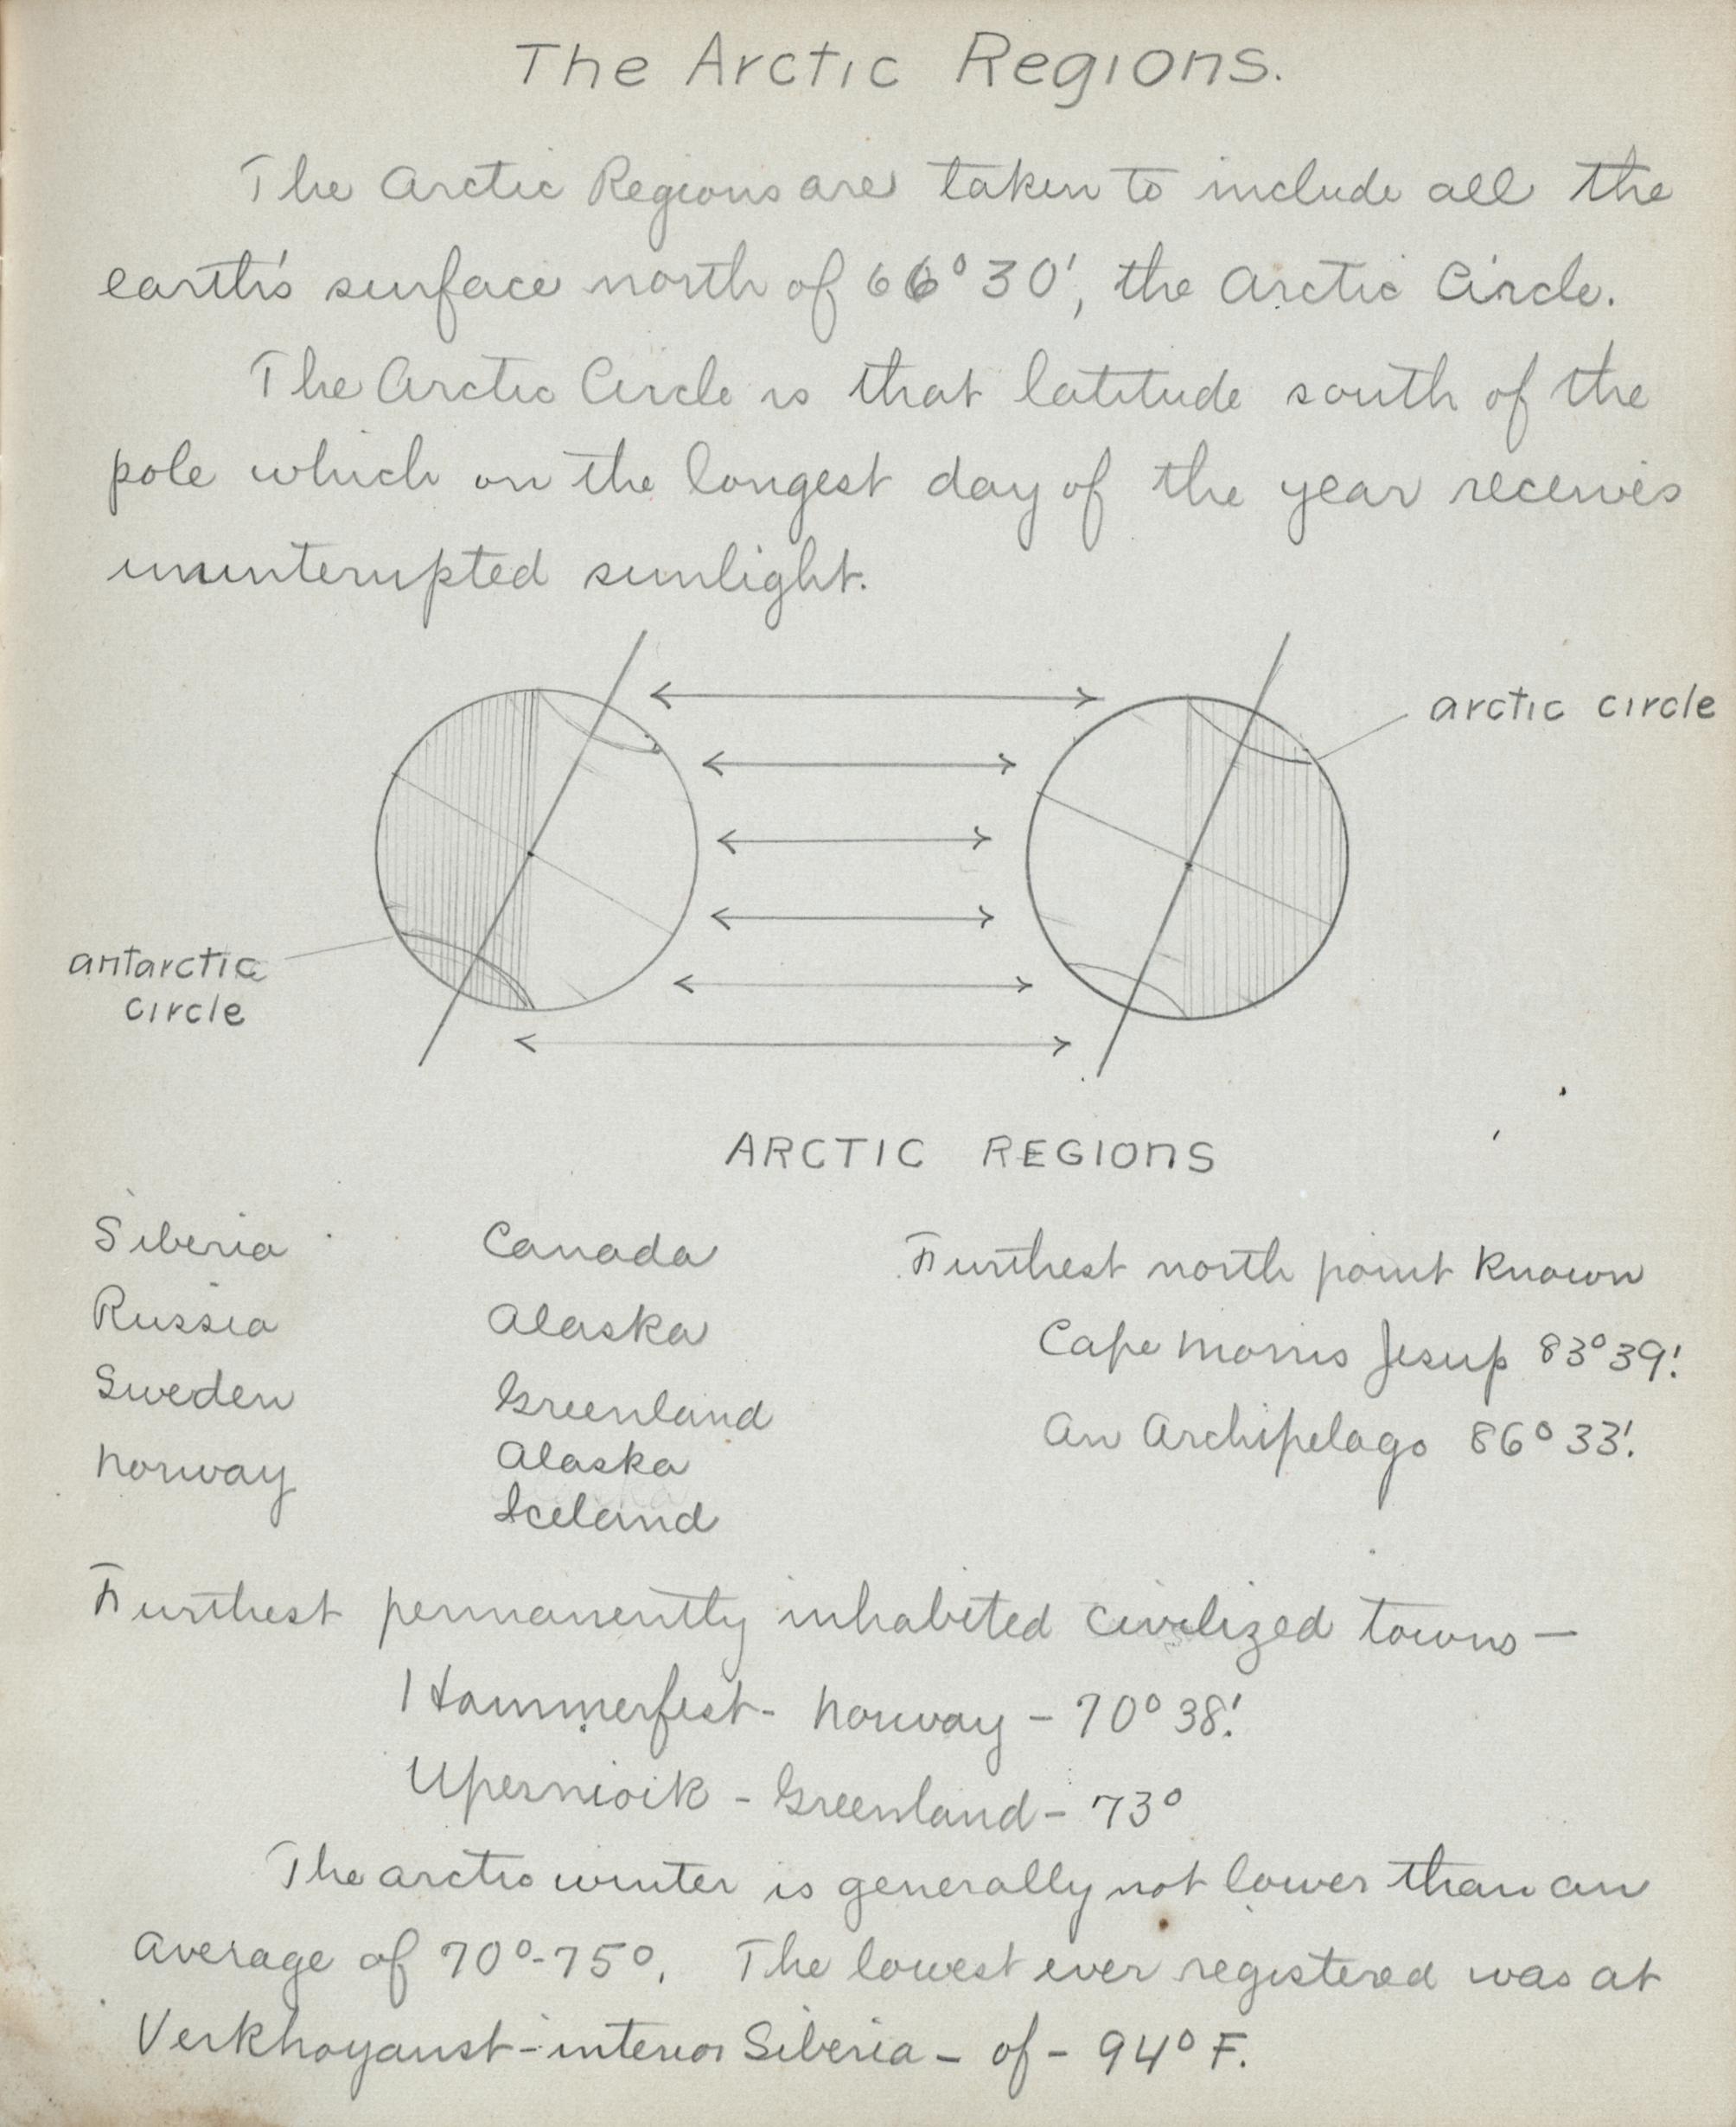 The Arctic Regions.
The Arctic Regions are taken to include all the
earth's surface north of 66° 30', the Arctic Circle.
The Arctic Circle is that latitude south of the
pole which on the longest day of the year receives
uninterupted sunlight.
arctic circle
antarctic
circle
ARCTIC REGIONS
Siberia
Russia
Sweden
Norway
Canada
Alaska
Greenland
Alaska
Iceland
Furthest north point known
Cape Morris Jesup 83° 39'.
An Archipelago 86° 33'.
Furthest permanently inhabited civilized towns —
Hammerfest - Norway - 70° 38'.
Upernivik - Greenland - 73°
The arctic winter is generally not lower than an
average of 70°-75°. The lowest ever registered was at
Verkhoyanst - interior Siberia - of - 94° F.